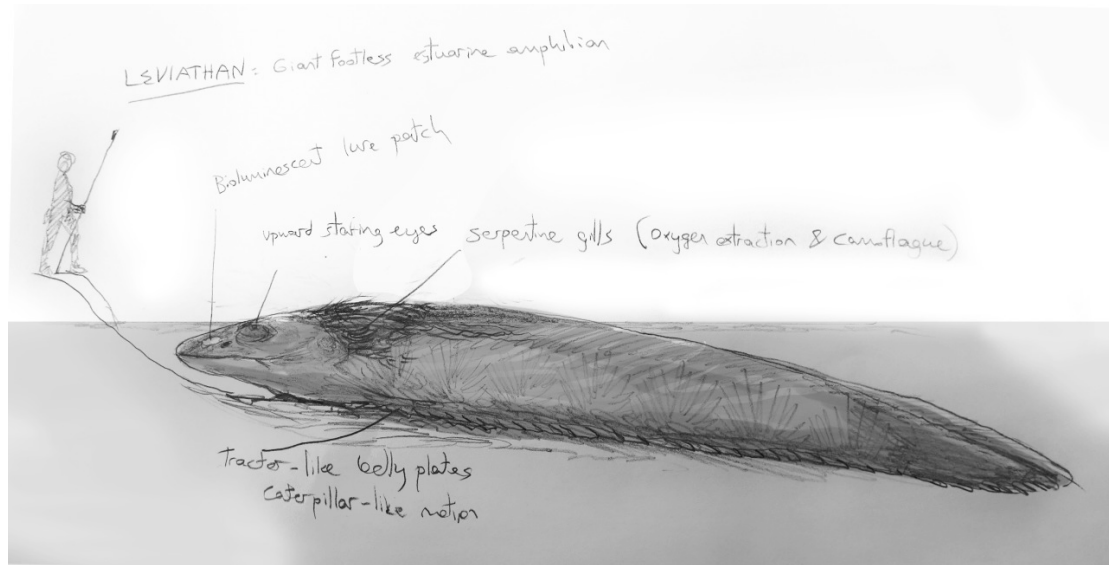 LEVIATHAN: Giant footless estuarine amphibian
Bioluminescent lure patch
upward staring eyes
serpentine gills (oxygen extraction & camoflague)
Tractor-like belly plates
Caterpillar-like motion